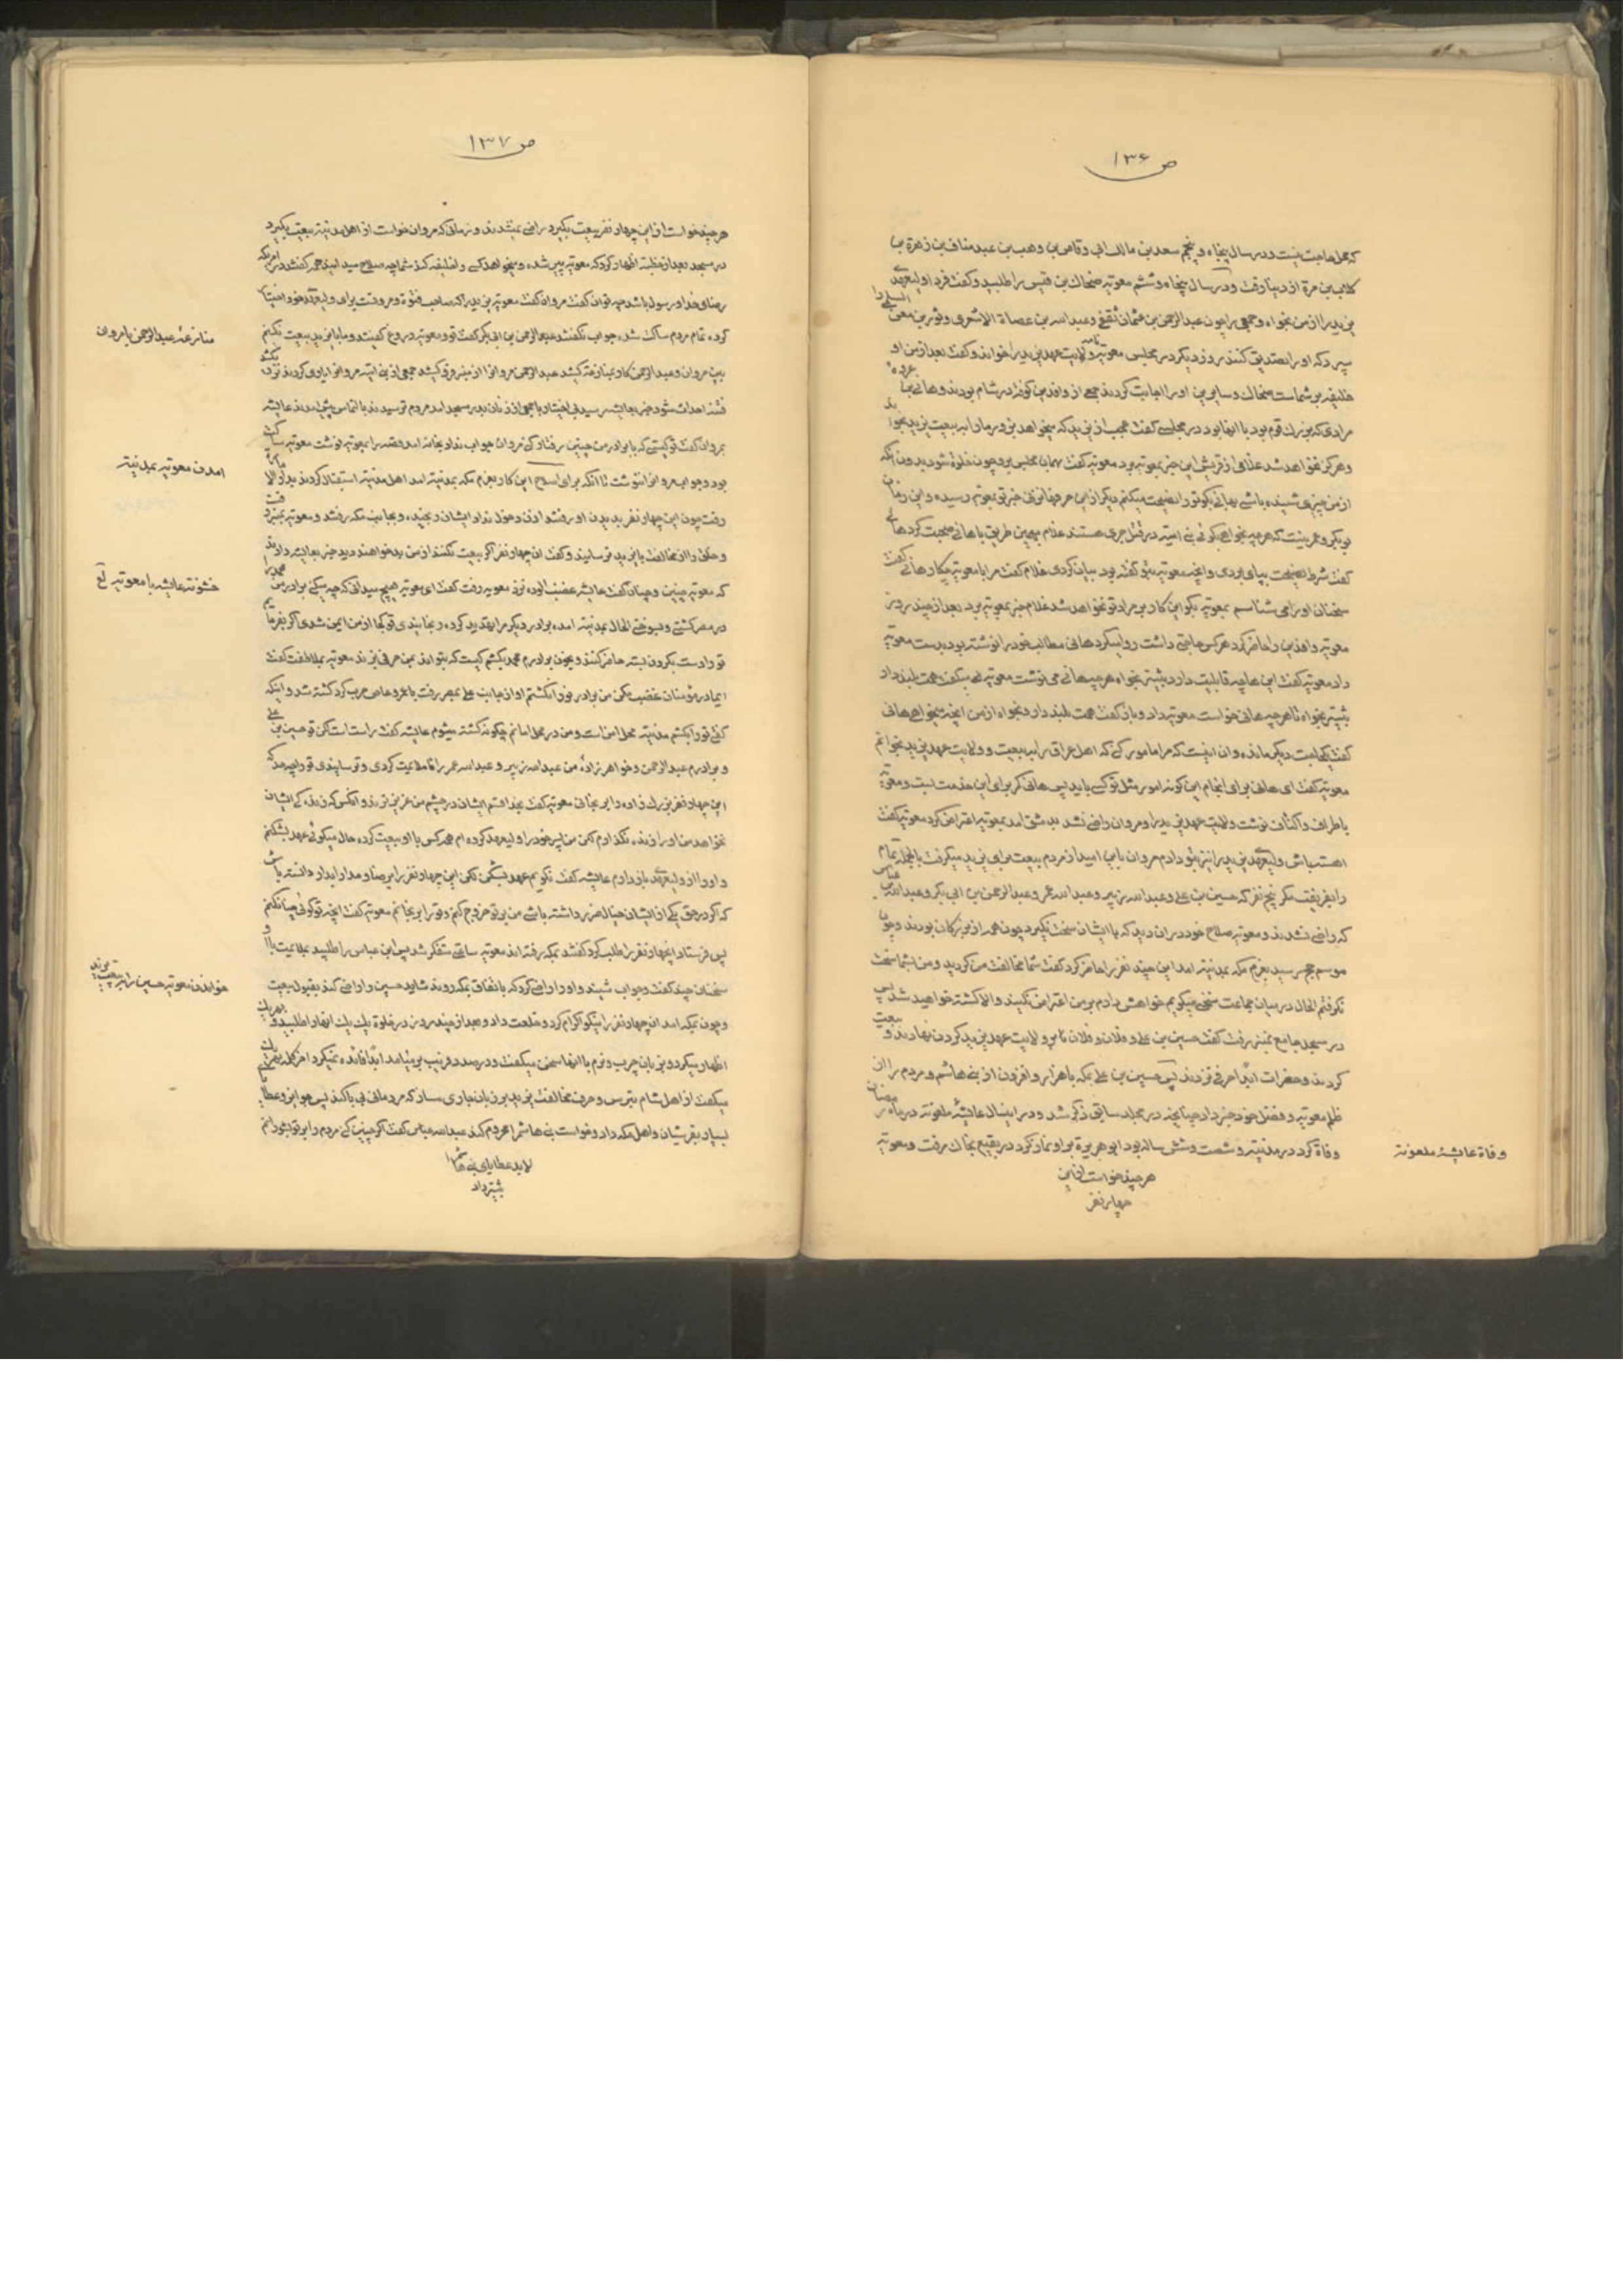 ص ۱۳۶
که محل حاجت نیست و در سال پنجاه و پنجم سعد بن مالک ابی وقاص بن وهب بن عبد مناف بن زهرة بن
کلاب بن مرة از دنیا رفت و در سال پنجاه و ششم معویه ضحاک بن قیس را طلبید و گفت فردا ولیعهدی
یزید را از من بخواه و جمعی را چون عبدالرحمن بن عثمان ثقفی و عبدالله بن عصاة الاشعری و ثور بن معن السلمی را
سپرد که او را تصدیق کنند روز دیگر در مجلس معویه نامه ولایت عهد یزید را خواند و گفت بعد از من او
خلیفه بر شماست ضحاک و سایرین او را اجابت کردند جمعی از وافدین کوفه در شام بودند و هانی بن عروه
مرادی که بزرگ قوم بود با انها بود در مجلسی گفت عجب از یزید که میخواهد بزور ما را به بیعت یزید بخواند
و هرگز نخواهد شد غلامی از قریش این خبر بمعویه برد معویه گفت بهمان مجلس برو چون خلوة شود بدون آنکه
از من چیزی شنیده باشی بهانی بگو تو را نصیحت میکنم دیگر از این حرفها نزنی خبر تو بمعویه رسیده و این زمان
ابوبکر و عمر نیست که هر چه بخواهی بگوئی بنی امیه در قتل جری هستند غلام بهمین طریق با هانی صحبت کرد هانی
گفت شرط نصیحت بپای بردی و انچه معویه بتو گفته بود بیان کردی غلام گفت مرا با معویه چکار هانی گفت
سخنان او را می شناسم بمعویه بگو این کار بر مراد تو نخواهد شد غلام خبر بمعویه برد بعد از چند روز
معویه وافدین را حاضر کرد هر کس حاجتی داشت روا میکرد هانی مطالب خود را نوشته بود بدست معویه
داد معویه گفت این ها چه قابلیت دارد بیشتر بخواه هر چه هانی می نوشت معویه می گفت همت بلند دار
بیشتر بخواه تا هر چه هانی خواست معویه داد و باز گفت همت بلند دار و بخواه از من انچه میخواهی هانی
گفت یک حاجت دیگر مانده و ان اینست که مرا مامور کنی که اهل عراق را به بیعت و ولایت عهد یزید بخوانم
معویه گفت ای هانی برای انجام این گونه امور مثل تو کسی باید پس هانی گر برای این خدمت است و معویه
باطراف و اکناف نوشت ولایت عهد یزید را و مروان راضی نشد بدمشق امد بمعویه اعتراض کرد معویه گفت
اهسته باش ولیعهد یزید را نیز بتو دادم مروان باین امید از مردم بیعت برای یزید میگرفت بالجمله تمام
را بفریفت مگر پنج نفر که حسین بن علی و عبدالله زبیر و عبدالله عمر و عبدالرحمن بن ابی بکر و عبدالله عباس
که راضی نشدند و معویه صلاح خود در ان دید که با ایشان سخت نگیرد چون همه از بزرگان بودند و چون
موسم حج رسید بعزم مکه بمدینه امد این چند نفر را حاضر کرد گفت شما مخالفت من کردید و من بشما سخت
نگرفتم الحال در میان جماعت سخنی میگویم خواهش دارم بر من اعتراض نکنید والا کشته خواهید شد پس
در مسجد جامع بمنبر رفت گفت حسین بن علی و فلان و فلان نامه ولایت عهد یزید بگردن نهادند و بیعت
کردند و حضرات ابدا حرفی نزدند پس حسین بن علی بمکه با هزار و افزون از بنی هاشم و مردم را از
ظلم معویه و فضل خود خبر داد چنانچه در مجلد سابق ذکر شد و در اینسال عایشه ملعونه در ماه رمضان
وفاة کرد در مدینه و شصت و شش ساله بود ابو هریرة بر او نماز کرد در بقیع بخاک رفت و معویه
هر چند خواست از این
چهار نفر
وفاة عایشه ملعونه
ص ۱۳۷
هر چند خواست از این چهار نفر بیعت بگیرد راضی نمیشدند و زمانی که مروان خواست از اهل مدینه بیعت بگیرد
در مسجد بعد از خطبه اظهار کرد که معویه پیر شده و میخواهد کسی را خلیفه کند شما چه صلاح میدانید همه گفتند در امری که
رضای خدا و رسول باشد چه توان گفت مروان گفت معویه یزید را که صاحب فتوة و مروت برای ولیعهدی خود اختیار
کرد، تمام مردم ساکت شد، جواب نگفتند عبدالرحمن بن ابی بکر گفت تو و معویه دروغ گفتید و ما با یزید بیعت نکنیم
بین مروان و عبدالرحمن کار بمنازعه کشید عبدالرحمن مروانرا از منبر فرو کشید جمعی از بنی امیه مروانرا یاری کردند نزدیک شد
فتنه احداث شود خبر بعایشه رسید بی اختیار با جمعی از زنان بدر مسجد امد مردم ترسیدند با التماس پیش امدند عایشه
بمروان گفت تو کیستی که با برادر من چنین رفتار کنی مروان جواب نداد بخانه امد و قصه را بمعویه نوشت معویه ساکت
بود و جواب مروانرا ننوشت تا آنکه برای اصلاح این کار بعزم مکه بمدینه امد اهل مدینه استقبال کردند بدار الاماره
رفت چون این چهار نفر بدیدن او رفتند اذن دخول نداد ایشان رنجیده و بجانب مکه رفتند و معویه بمنبر رفت
و خلق را از مخالفت با یزید ترسانید و گفت ان چهار نفر اگر بیعت نکنند از من بد خواهند دید خبر بعایشه دادند
که معویه چنین و چنان گفت عایشه غضب الوده نزد معویه رفت گفت ای معویه هیچ میدانی که چه میکنی برادر من محمد را
در مصر کشتی و بسوختی الحال بمدینه امده برادر دیگر مرا تهدید کرده و بخانیدی تو کجا از من ایمن شدی اگر بفرمایم
تو را دست بگردن بسته حاضر کنند و بخون برادرم محمد بکشم کیست که بتواند بمن حرفی بزند معویه بملاطفت گفت
ای مادر مؤمنان غضب مکن من برادر تو را نکشتم او از جانب علی بمصر رفت با عمرو عاص حرب کرد کشته شد و اینکه
گفتی تو را بکشم مدینه محل امن است و من در محل امانم چگونه کشته میشوم عایشه گفت راست است لکن تو حسین بن علی
و برادرم عبدالرحمن و خواهر زادهٔ من عبدالله زبیر و عبدالله عمر را ملامت کردی و ترسانیدی تو را چه حد که
این چهار نفر بزرگ زاده را برنجانی معویه گفت بخدا قسم ایشان در چشم من عزیز ترند و انکس که زنده گی ایشان
نخواهد من او را زنده نگذارم لکن من پسر خود را ولیعهد کرده ام همه کس با او بیعت کرده حال میگوئی عهد بشکنم
و او را از ولیعهدی باز دارم عایشه گفت نگویم عهد بشکن لکن این چهار نفر را برضا و مدارا بدار دانسته باش
که اگر در حق یکی از ایشان خیال ضرر داشته باشی من بر تو خروج کنم و تو را برنجانم معویه گفت انچه تو گوئی چنان کنم
پس فرستاد انچهار نفر را طلب کرد گفتند بمکه رفته اند معویه ساعتی متفکر شد پس ابن عباس را طلبید بملایمت با او
سخنان چند گفت و جواب شنید و او را راضی کرد که باتفاق بمکه روند شاید حسین را راضی کند بقبول بیعت
و چون بمکه امد ان چهار نفر را نیکو اکرام کرد و خلعت داد و بعد از چند روز در خلوة یک یک انها را طلبید و بهر یک
اظهار میکرد و بزبان چرب و نرم با انها سخن میگفت و در صدد فریب بر میامد ابدا فائده نمیکرد اخر کلمه بهر یک
میگفت از اهل شام بترس و حرف مخالفت یزید بر زبان جاری مساز که مردمانی بی باکند پس جوایز و عطایا
بسیار بقرشیان و اهل مکه داد و خواست بنی هاشم را محروم کند عبدالله عباس گفت اگر چنین کنی مردم را بر تو بشورانم
لابد عطایای بنی هاشم را
بیشتر داد
منازعهٔ عبدالرحمن با مروان
امدن معویه بمدینه
خشونت عایشه با معویه
خواندن معویه حسین را به بیعت یزید